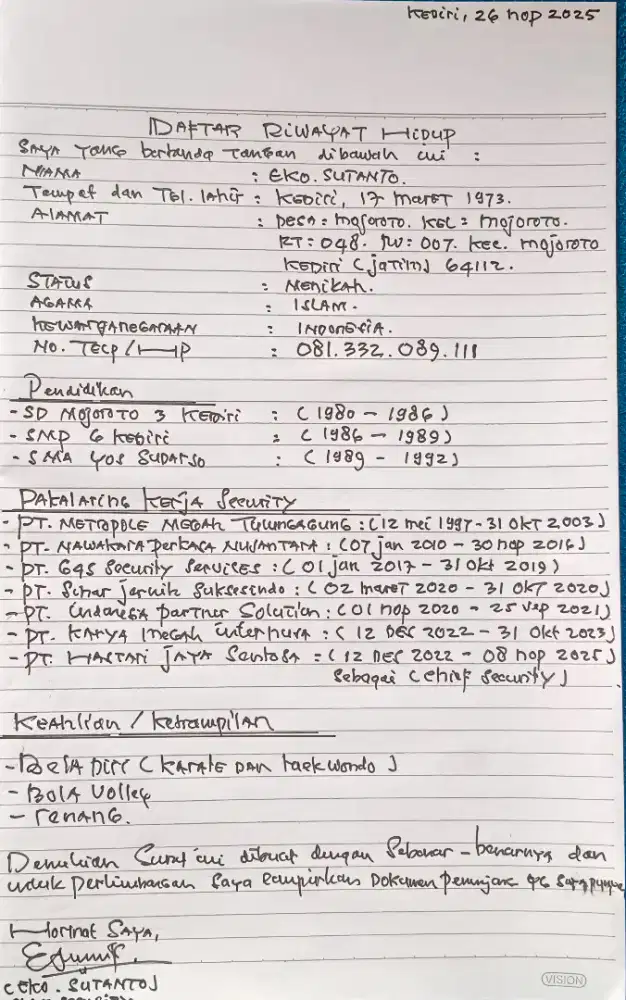 Kediri, 26 Nop 2025
DAFTAR RIWAYAT HIDUP
Saya yang bertanda tangan dibawah ini :
NAMA : EKO. SUTANTO.
Tempat dan Tgl. lahir : Kediri, 17 Maret 1973.
ALAMAT : Desa : Mojoroto. Kel : Mojoroto.
RT : 048. RW : 007. Kec. Mojoroto
Kediri (Jatim) 64112.
STATUS : Menikah.
AGAMA : ISLAM.
KEWARGANEGARAAN : INDONESIA.
NO. TELP/HP : 081.332.089.111
Pendidikan
- SD Mojoroto 3 Kediri : (1980 - 1986)
- SMP 6 Kediri : (1986 - 1989)
- SMA YOS SUDARSO : (1989 - 1992)
Kerja Security
- PT. METROPOLE MEGAH TULUNGAGUNG : (12 Mei 1997 - 31 OKT 2003)
- PT. NAWAKARA Perkasa NUSANTARA : (07 Jan 2010 - 30 Nop 2016)
- PT. G4S Security Services : (01 Jan 2017 - 31 Okt 2019)
- PT. Sinar Jernih Suksesindo : (02 Maret 2020 - 31 OKT 2020)
- PT. Indonesa Partner Solution : (01 Nop 2020 - 25 Sep 2021)
- PT. KARYA Megah : (12 DES 2022 - 31 Okt 2023)
- PT. HASTARI JAYA Sentosa : (12 DES 2022 - 08 Nop 2025)
Sebagai (Chief Security)
Keahlian / Ketrampilan
- Bela Diri (KARATE DAN Taekwondo)
- Bola Volley
- renang.
Demikian Surat ini dibuat dengan Sebenar - benarnya dan
untuk pertimbangan Saya lampirkan Dokumen penunjang
Hormat SAYA,
(EKO. SUTANTO)
VISION